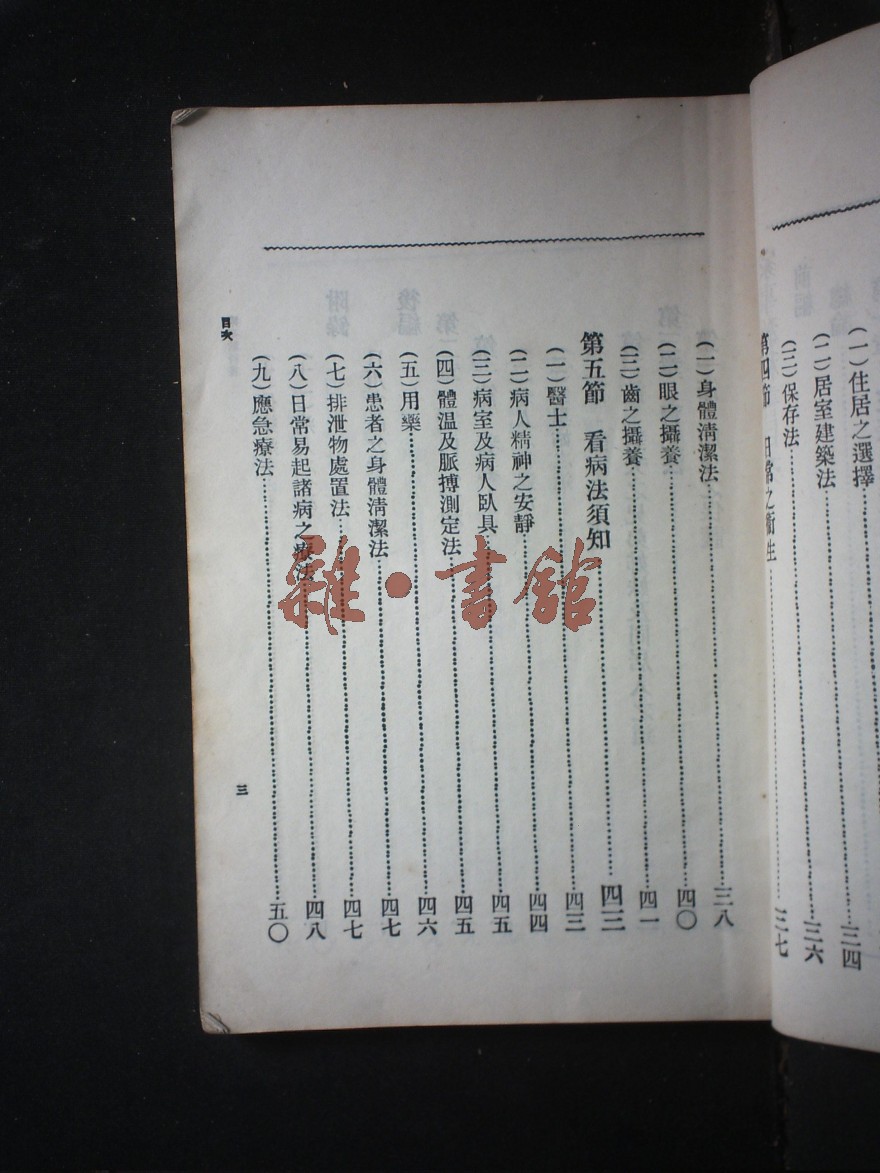 (一)住居之選擇……三四
(二)居室建築法……三六
(三)保存法……三七
第四節 日常之衞生
(一)身體淸潔法……三八
(二)眼之攝養……四〇
(三)齒之攝養……四一
第五節 看病法須知……四三
(一)醫士……四三
(二)病人精神之安靜……四四
(三)病室及病人臥具……四五
(四)體温及脈搏測定法……四五
(五)用藥……四六
(六)患者之身體淸潔法……四七
(七)排泄物處置法……四七
(八)日常易起諸病之療法……四八
(九)應急療法……五〇
目次
三
雜·書館